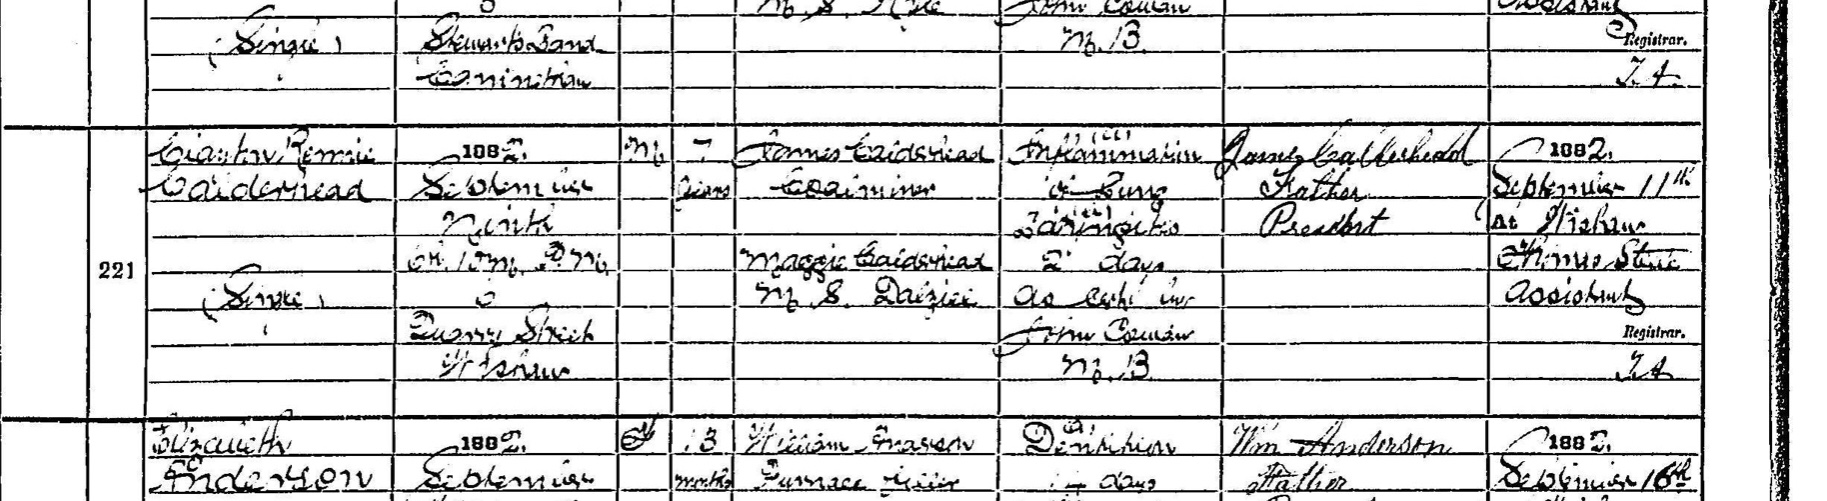 M. S.
John Cowan
Assistant
(Single)
Stewarts Land
M.B.
Registrar.
Cambusnethan
221
Rennie
Calderhead
(Single)
1882.
September
Ninth
6h. 15m. P.M.
Quarry Street
Wishaw
M
7
years
James Calderhead
Coalminer
Maggie Calderhead
M. S. Dalziel
(1)
Inflammation
of Lung
(2)
Laryngitis
2 days
as cert by
John Cowan
M.B
James Calderhead
Father
Present
1882.
September 11th
At Wishaw
Thomas
Assistant
Registrar.
Elizabeth
Anderson
1882.
September
F
13
months
William
Furnace filler
Dentition
14 days
Wm Anderson
Father
1882.
September 16th